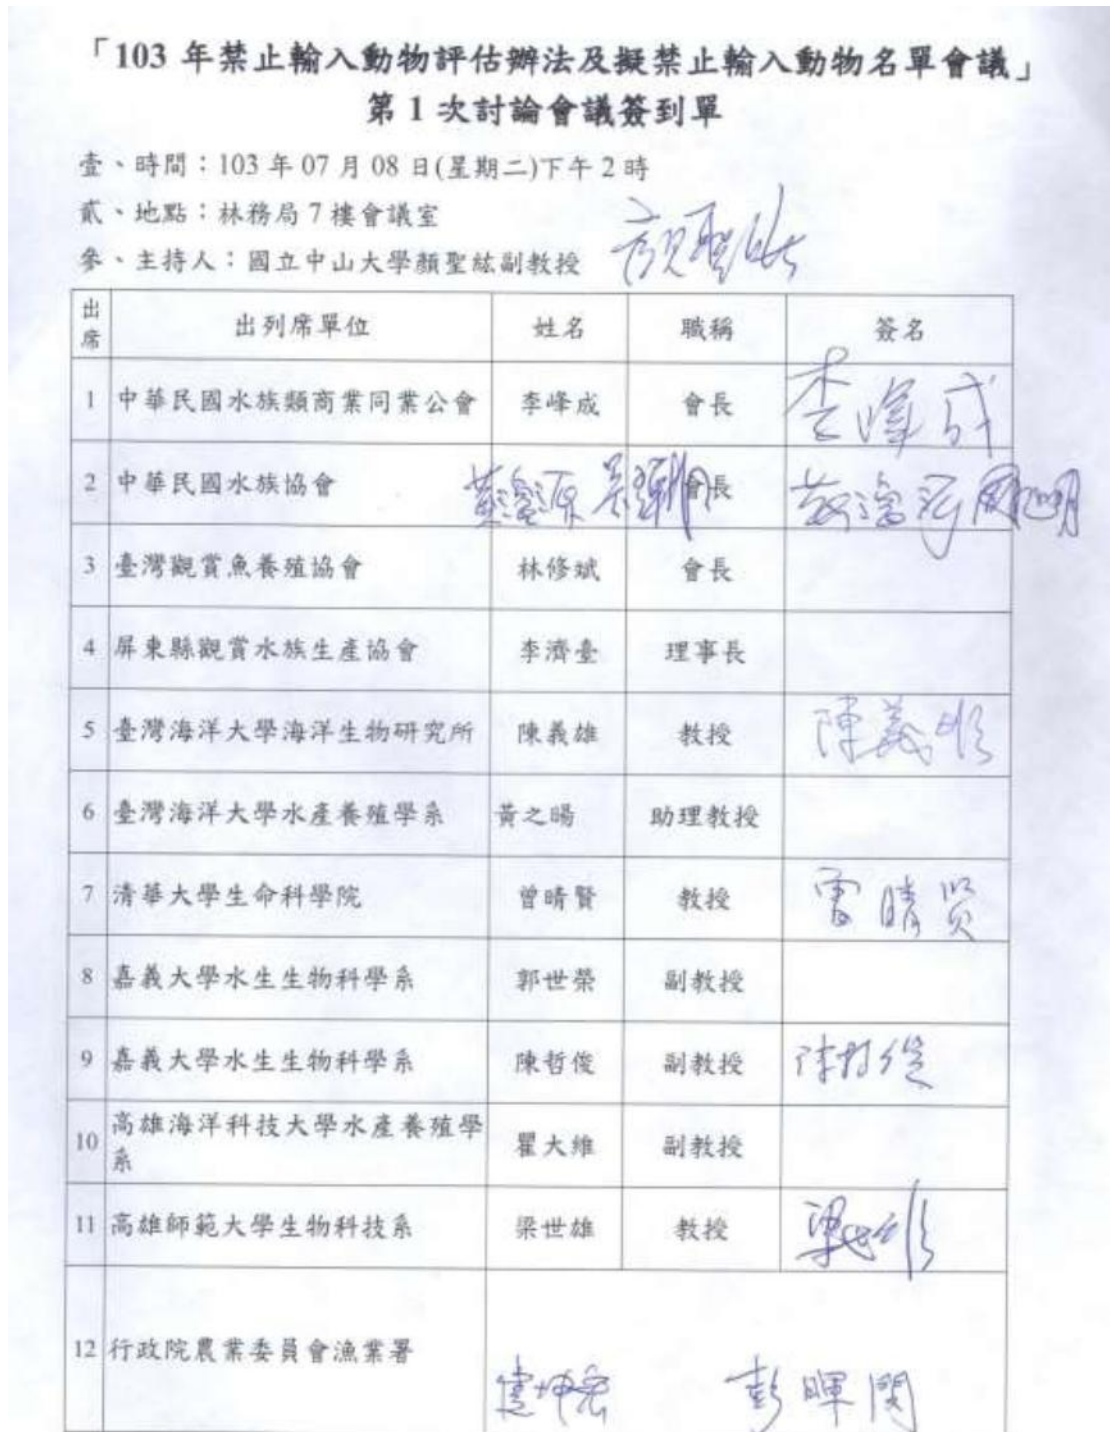 「103 年禁止輸入動物評估辦法及擬禁止輸入動物名單會議」
第 1 次討論會議簽到單
壹、時間：103 年 07 月 08 日(星期二)下午 2 時
貳、地點：林務局 7 樓會議室
參、主持人：國立中山大學顏聖紘副教授 顏聖紘
出席 出列席單位 姓名 職稱 簽名
1 中華民國水族類商業同業公會 李峰成 會長 李峰成
2 中華民國水族協會 會長
3 臺灣觀賞魚養殖協會 林修斌 會長
4 屏東縣觀賞水族生產協會 李濟臺 理事長
5 臺灣海洋大學海洋生物研究所 陳義雄 教授 陳義雄
6 臺灣海洋大學水產養殖學系 黃之暘 助理教授
7 清華大學生命科學院 曾晴賢 教授 曾晴賢
8 嘉義大學水生生物科學系 郭世榮 副教授
9 嘉義大學水生生物科學系 陳哲俊 副教授 陳哲俊
10 高雄海洋科技大學水產養殖學系 瞿大維 副教授
11 高雄師範大學生物科技系 梁世雄 教授 梁世雄
12 行政院農業委員會漁業署